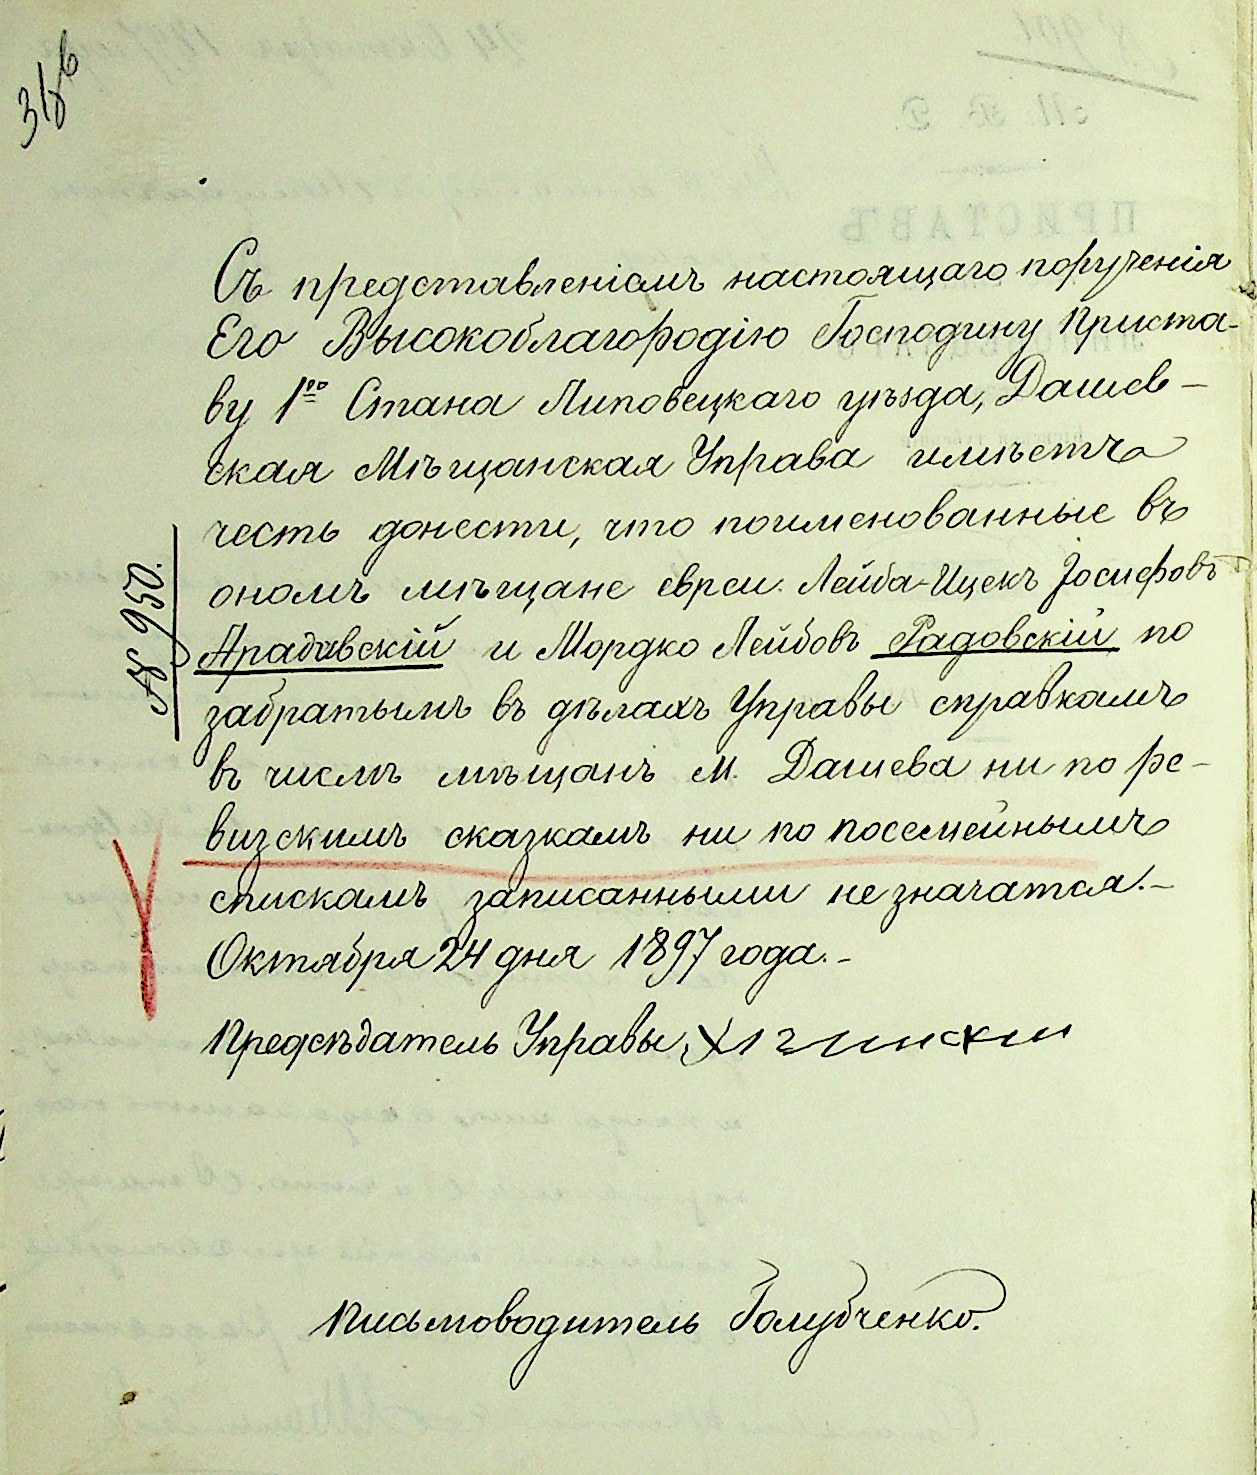 Съ представленіемъ настоящаго порученія
Его Высокоблагородію Господину Приста-
ву 1го Стана Липовецкаго уѣзда, Дашев-
ская Мѣщанская Управа имѣетъ
честь донести, что поименованные въ
ономъ мѣщане евреи Лейба-Ицекъ Іосифовъ
№ 950.
Арадавскій и Мордко Лейбовъ Радовскій, по
забратымъ въ дѣлахъ Управы справкамъ
въ числѣ мѣщанъ м. Дашева ни по ре-
визскимъ сказкамъ ни по посемейнымъ
спискамъ записанными не значатся.-
Октября 24 дня 1897 года.-
Предсѣдатель Управы
Письмоводитель Голубченко.